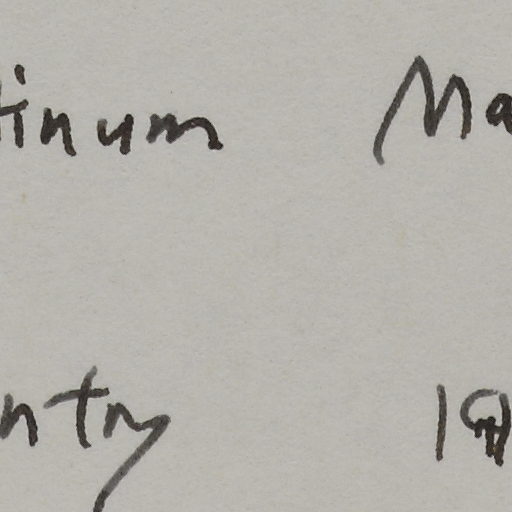 tinum Ma
ntry